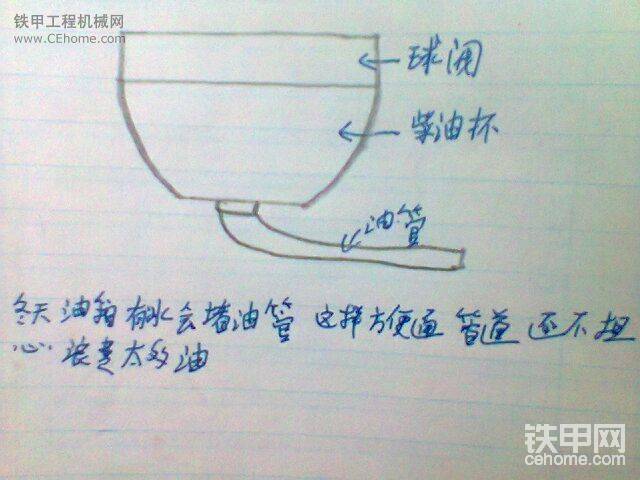 铁甲工程机械网
www.CEhome.com
球阀
柴油杯
油管
冬天油箱有水会堵油管 这样方便通管道还不担
心浪费太多油
铁甲网
cehome.com